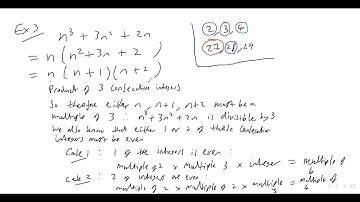 Ex 3
n³ + 3n² + 2n
= n (n² + 3n + 2)
= n (n+1)(n+2)
Product of 3 consecutive integers
So therefore either n, n+1, n+2 must be a
multiple of 3 ∴ n³ + 3n² + 2n is divisible by 3
We also know that either 1 or 2 of these consecutive
integers must be even
Case 1: 1 of the integers is even:
multiple of 2 × multiple 3 × integer = multiple of 6
Case 2: 2 of integers are even:
multiple of 2 × multiple of 2 × multiple 3 = multiple of 6
2, 3, 4
27, 28, 29